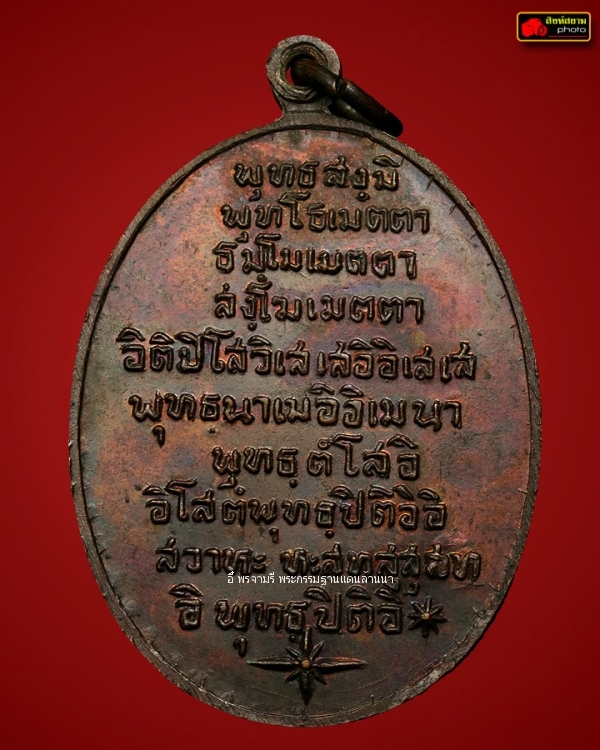 สิงห์สยาม
photo
พุทธสังมิ
พุทโธเมตตา
ธมฺโมเมตตา
สังโฆเมตตา
อิติปิโสวิเสเสอิอิเสเส
พุทธฺนาเมอิอิเมนา
พุทธฺตํโสอิ
อิโสตํพุทธฺปิติอิอิ
สวาหะ
อี๋ พรจามรี พระกรรมฐานแดนล้านนา
อิ พุทธฺปิติอิ